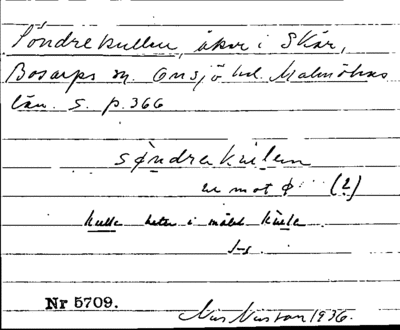 Söndrekullen, åker i Skär,
Bosarps sn. Onsjö hd. Malmöhus
län. S. p. 366
søndrakulen
u mot ø (2)
kulle heter i målet kula.
Nr 5709.
Nils Nilsson 1936.